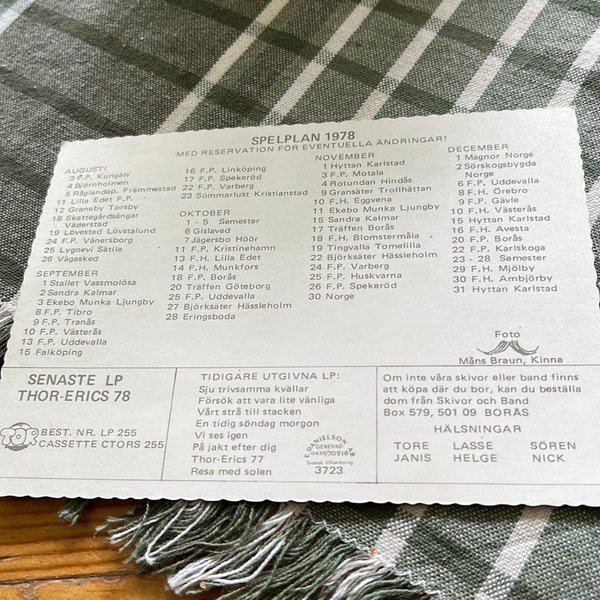 SPELPLAN 1978
MED RESERVATION FÖR EVENTUELLA ÄNDRINGAR!
AUGUSTI
3 P.P. Kungälv
4 Björnholmen
5 Råglandap. Främmestad
11 Lilla Edet F.P.
12 Graneby Torsby
18 Skattegårdsängar
Väderstad
19 Lövestad Lövstalund
24 F.P. Vänersborg
25 Lygnevi Sätila
26 Vägasked
SEPTEMBER
1 Stallet Vassmolösa
2 Sandra Kalmar
3 Ekebo Munka Ljungby
8 F.P. Tibro
9 F.P. Tranås
10 F.P. Västerås
13 F.P. Uddevalla
15 Falköping
16 F.P. Linköping
17 F.P. Spekeröd
22 F.P. Varberg
23 Sommarlust Kristianstad
OKTOBER
1 - 5 Semester
6 Gislaved
7 Jägersbo Höör
11 F.P. Kristinehamn
13 F.H. Lilla Edet
14 F.H. Munkfors
18 F.P. Borås
20 Träffen Göteborg
25 F.P. Uddevalla
27 Björksäter Hässleholm
28 Eringsboda
NOVEMBER
1 Hyttan Karlstad
3 F.P. Motala
4 Rotundan Hindås
9 Gransäter Trollhättan
10 F.H. Eggvena
11 Ekebo Munka Ljungby
15 Sandra Kalmar
17 Träffen Borås
18 F.H. Blomstermåla
19 Tingvalla Tomelilla
22 Björksäter Hässleholm
24 F.P. Varberg
25 F.P. Huskvarna
26 F.P. Spekeröd
30 Norge
DECEMBER
1 Magnor Norge
2 Sörskogsbygda
Norge
6 F.P. Uddevalla
8 F.H. Örebro
9 F.P. Gävle
10 F.H. Västerås
15 Hyttan Karlstad
16 F.H. Avesta
20 F.P. Borås
22 F.P. Karlskoga
23 - 28 Semester
29 F.H. Mjölby
30 F.H. Ambjörby
31 Hyttan Karlstad
Foto
Måns Braun, Kinna
SENASTE LP
THOR-ERICS 78
POP
BEST. NR. LP 255
CASSETTE CTORS 255
TIDIGARE UTGIVNA LP:
Sju trivsamma kvällar
Försök att vara lite vänliga
Vårt strå till stacken
En tidig söndag morgon
Vi ses igen
På jakt efter dig
Thor-Erics 77
Resa med solen
E. DANIELSON AB
GENEVAD
0430/70218
Svensk tillverkning
3723
Om inte våra skivor eller band finns
att köpa där du bor, kan du beställa
dom från Skivor och Band
Box 579, 501 09 BORÅS
HÄLSNINGAR
TORE LASSE SÖREN
JANIS HELGE NICK